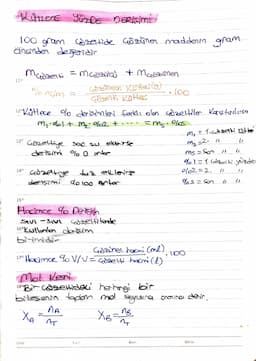 KÜTLECE YÜZDE DERİŞİMİ
100 gram çözeltide çözünen maddenin gram
cinsinden değeridir
mçözelti = mçözücü + mçözünen
Çözünen kütlesi
Çözelti kütlesi
.100
Kütlece % derişimleri farklı olan çözeltiler karıştırılırsa
m₁.%1 + m₂.%2 + ..... = mₛ.%s
m₁ = 1. çözelti kütlesi
Çözeltiye saf su eklenirse
m₂ = 2. " "
derişimi % 0 alınır
mₛ = son " "
%1 = 1. çözelti yüzdesi
Çözeltiye tuz eklenirse
%2 = 2. " "
derişimi %100 alınır
%s = son " "
Hacimce % Derişim
Sıvı - sıvı çözeltilerde
kullanılan derişim
birimidir
Hacimce % V/V = Çözünen hacmi (ml) .100
Çözelti hacmi
Mol Kesri
Bir çözeltideki herhangi bir
bileşenin toplam mol sayısına oranına denir.
X_A = n_A / n_T X_B = n_B / n_T